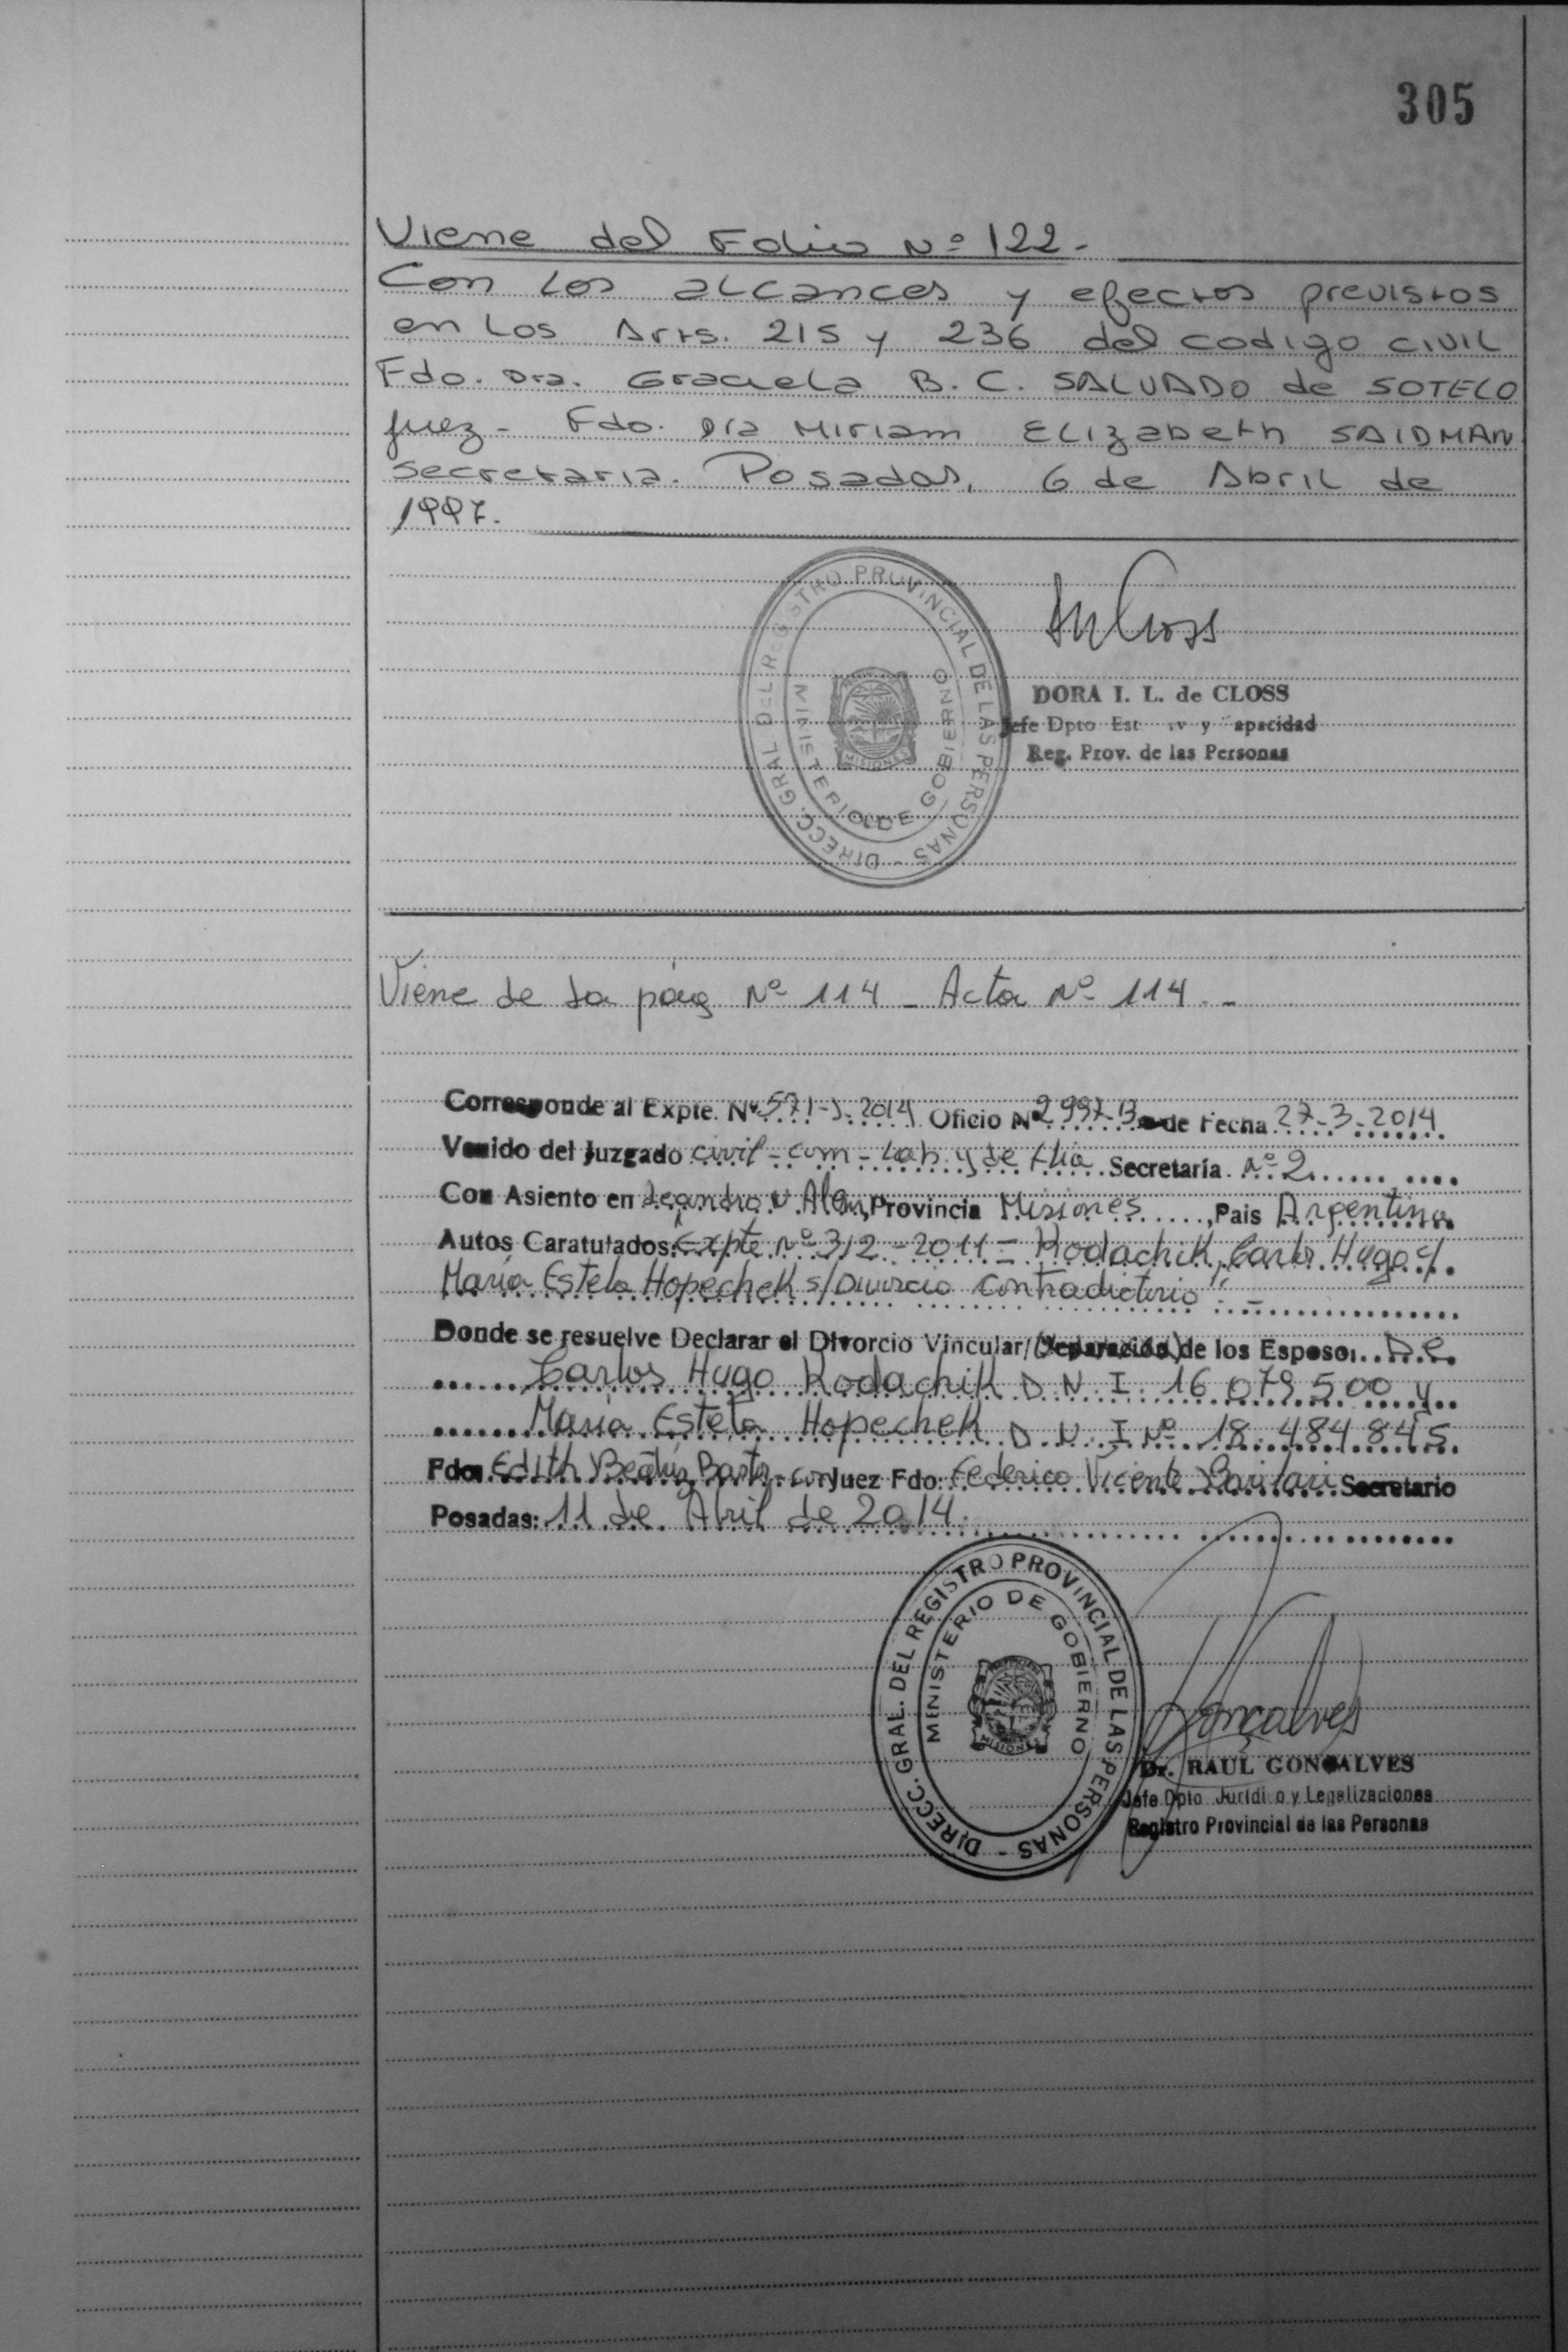 305
Viene del Folio Nº 122.-
Con los alcances y efectos previstos
en los Arts. 215 y 236 del codigo civil
Fdo. Dra. Graciela B. C. SALVADO de SOTELO
Juez - Fdo. Dra Miriam Elizabeth SAIDMAN
secretaria. Posadas, 6 de Abril de
1997.
DIRECC. GRAL. DEL REGISTRO PROVINCIAL DE LAS PERSONAS -
MINISTERIO DE GOBIERNO
MISIONES
DORA I. L. de CLOSS
Jefe Dpto Est iv y apacidad
Reg. Prov. de las Personas
Viene de la pág Nº 114 - Acta Nº 114.-
Corresponde al Expte. Nº 571-J-2014 Oficio Nº 2997-13 de Fecha 27-3-2014
Venido del Juzgado civil-com-Lab y de flia Secretaría Nº 2
Con Asiento en Leandro N Alem, Provincia Misiones, Pais Argentina
Autos Caratulados: Expte Nº 312-2011 - Kodachik, Carlos Hugo c/
María Estela Hopechek s/Divorcio Contradictorio".-
Donde se resuelve Declarar el Divorcio Vincular/(Separación) de los Esposos De
Carlos Hugo Kodachik D N I 16 079 500 y
María Estela Hopechek D N I Nº 18 484 845
Fdo: Edith Beatriz Juez Fdo: Federico Vicente Secretario
Posadas: 11 de Abril de 2014.
DIRECC. GRAL. DEL REGISTRO PROVINCIAL DE LAS PERSONAS -
MINISTERIO DE GOBIERNO
MISIONES
Gonçalves
Dr. RAUL GONÇALVES
Jefe Dpto Juridi o y Legalizaciones
Registro Provincial de las Personas